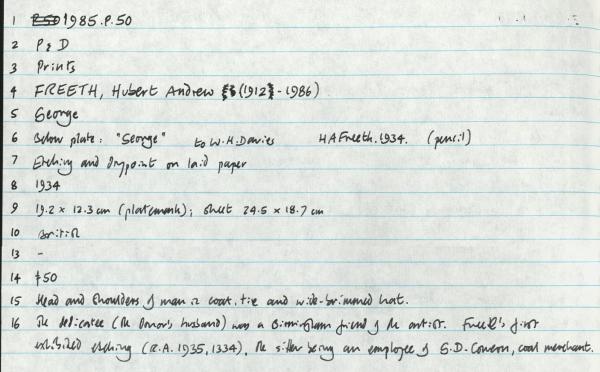 1 1985.P.50
2 P & D
3 Prints
4 FREETH, Hubert Andrew (1912 - 1986)
5 George
6 Below plate: "George" to W.H.Davies HAFreeth.1934. (pencil)
7 Etching and Drypoint on laid paper
8 1934
9 19.2 x 12.3 cm (platemark); sheet 24.5 x 18.7 cm
10 British
13 -
14 £50
15 Head and Shoulders of man in coat, tie and wide-brimmed hat.
16 The dedicatee (the Donor's husband) was a Birmingham friend of the artist. Freeth's first
exhibited etching (R.A. 1935, 1334), the sitter being an employee of S.D. coal merchant.